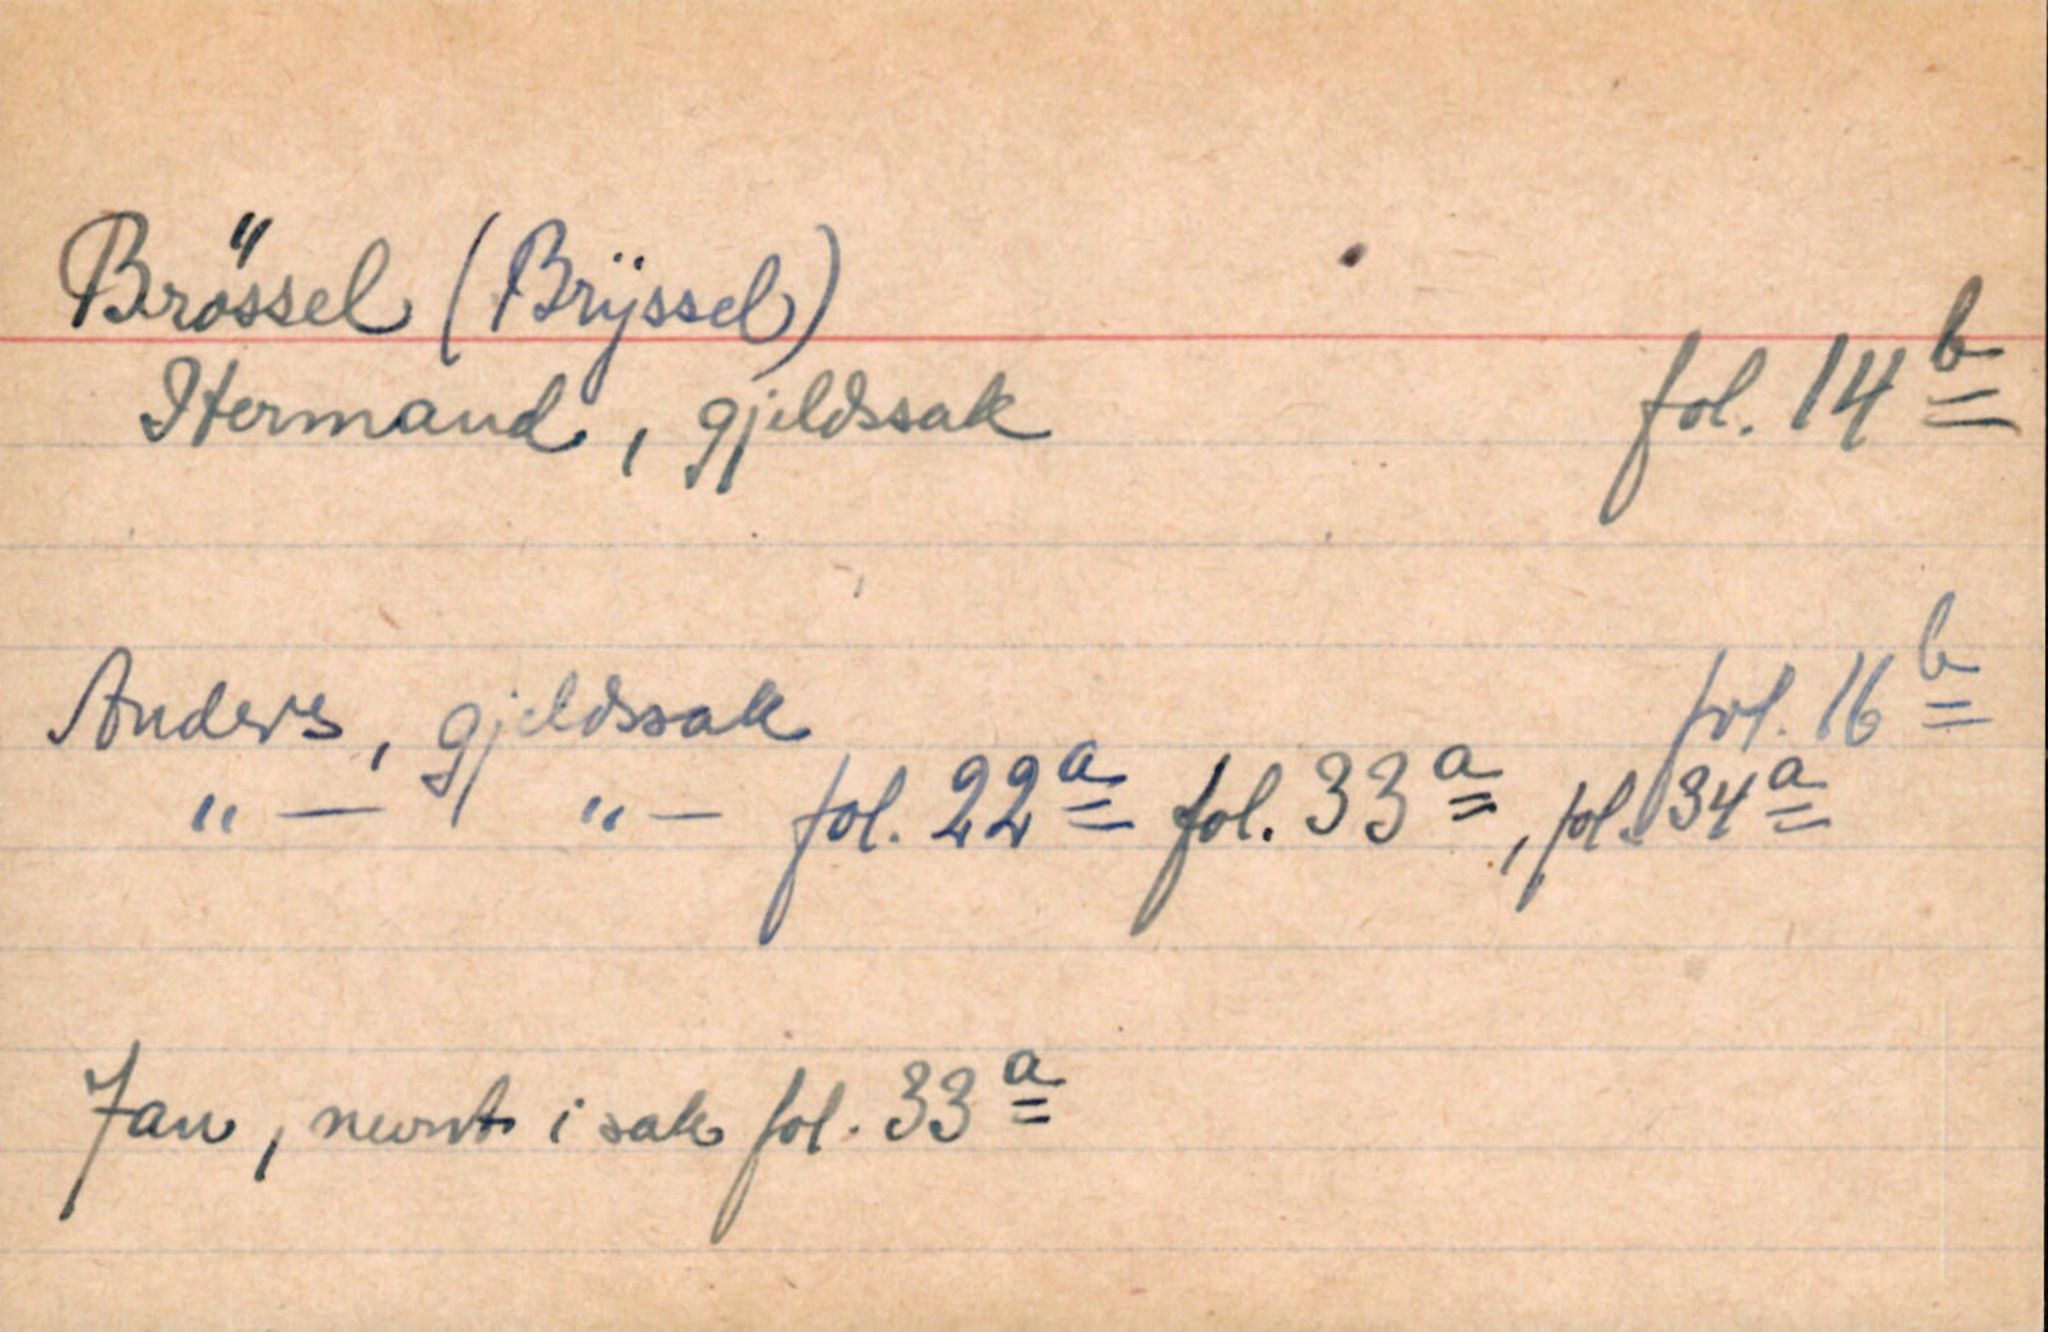 Brössel (Brÿssel)
Hermand, gjeldssak fol. 14 b
Anders, gjeldssak fol. 16 b
„ — „ — fol. 22 a fol. 33 a, fol. 34 a
Jan, nevnt i sak fol. 33 a